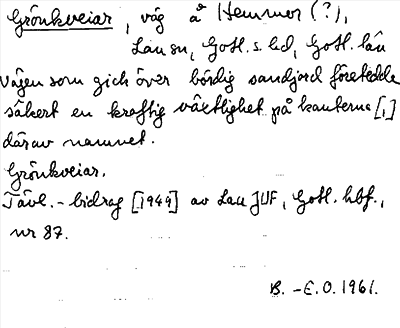 Grönkveiar, väg å Hemmor (?),
Lau sn, Gotl. s. hd, Gotl. län
Vägen som gick över bördig sandjord företedde
säkert en kraftig växtlighet på kanterna [,]
därav namnet.
Grönkveiar.
Tävl.-bidrag [1949] av Lau JUF, Gotl. hbf.,
nr 87.
B.-E.O. 1961.